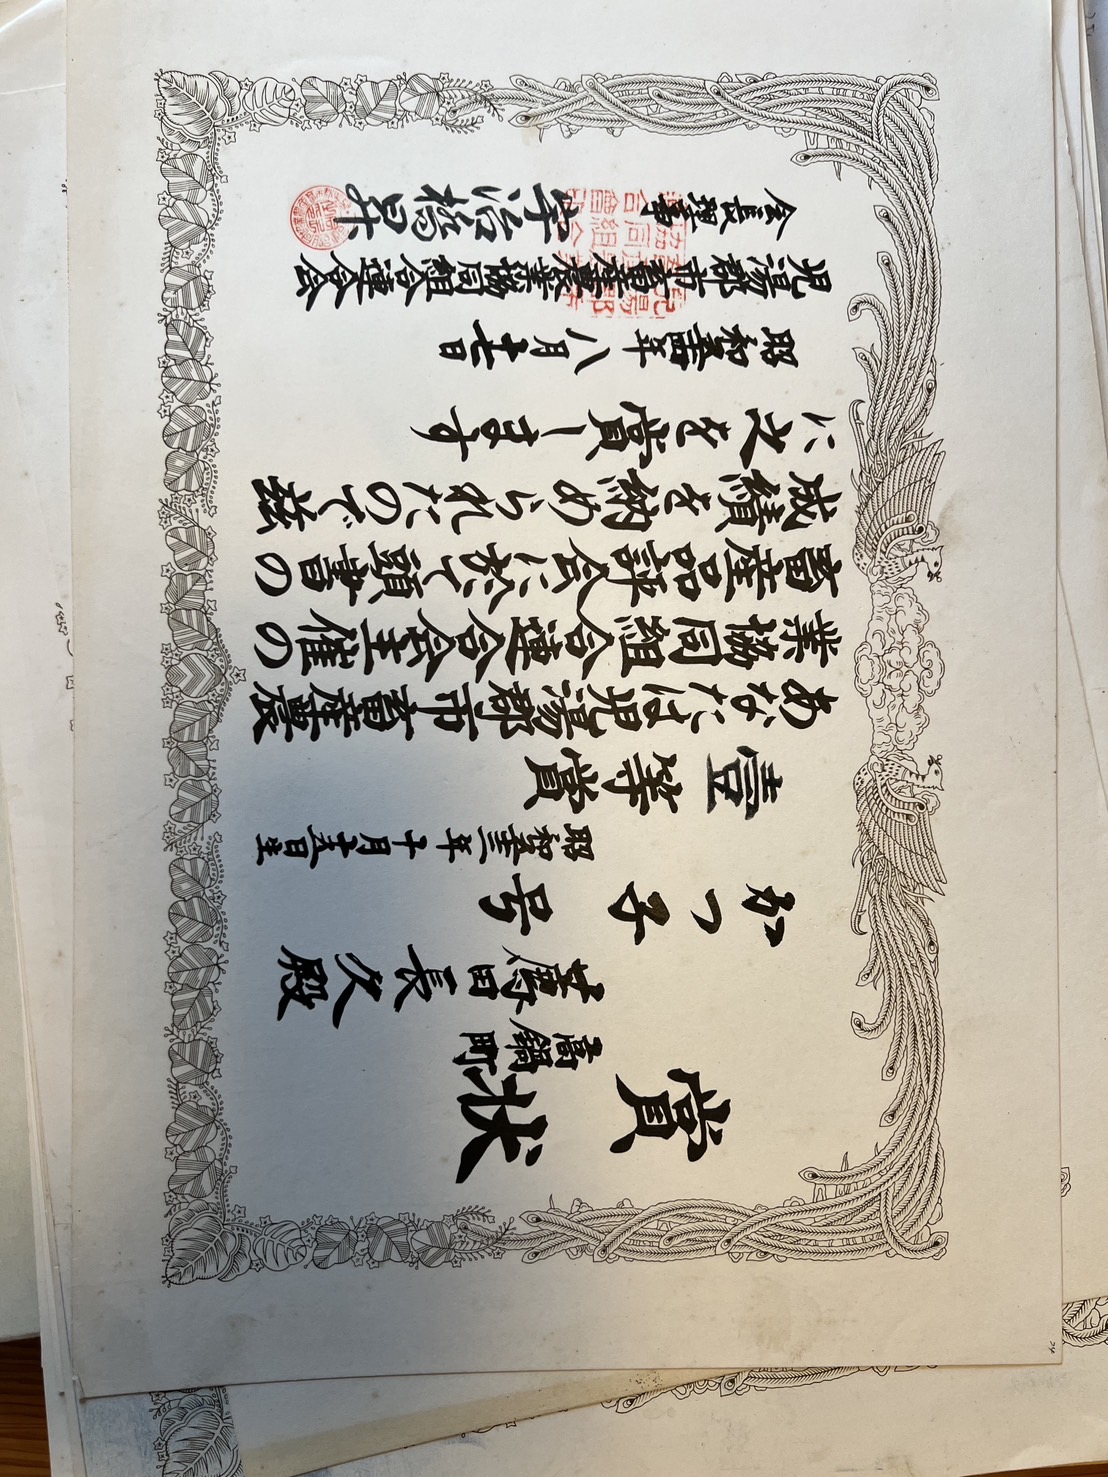 賞状
高鍋町
長久殿
かつ子号
昭和三年十月十五日生
壹等賞
あなたは児湯郡市畜産農
業協同組合連合会主催の
畜産品評会に於て頭書の
成績を納められたので茲
に之を賞します
昭和年八月十七日
児湯郡市畜産農業協同組合連合会
会長理事